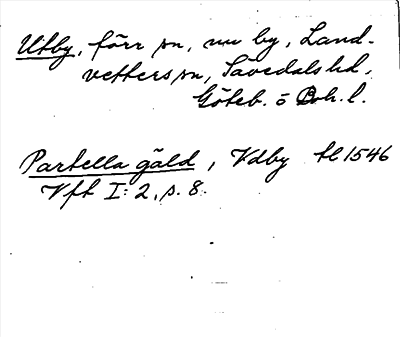 Utby, förr sn, nu by, Land-
vetterssn, Sävedals hd,
Göteb. o Boh. l.
Partella gäld, Vdby tl 1546
Vft I: 2, s. 8.